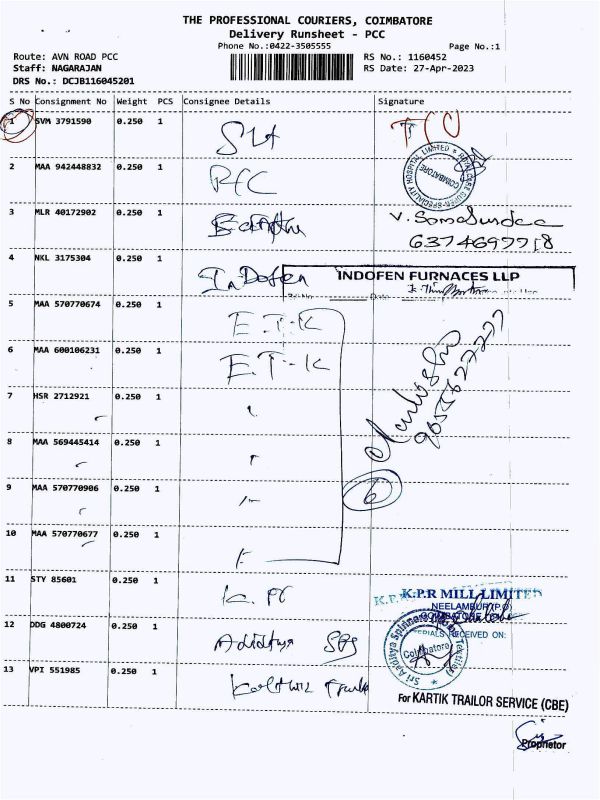 THE PROFESSIONAL COURIERS, COIMBATORE
Delivery Runsheet - PCC
Phone No.:0422-3505555 Page No.:1
Route: AVN ROAD PCC RS No.: 1160452
Staff: NAGARAJAN RS Date: 27-Apr-2023
DRS No.: DCJB116045201
S No Consignment No Weight PCS Consignee Details Signature
1 SVM 3791590 0.250 1
2 MAA 942448832 0.250 1
ROYAL CARE SUPER-SPECIALITY HOSPITAL LIMITED
COIMBATORE
3 MLR 40172902 0.250 1 V. Somasundaa
6374697718
4 NKL 3175304 0.250 1 InDofen INDOFEN FURNACES LLP
5 MAA 570770674 0.250 1 E.T.K
6 MAA 600106231 0.250 1 E.T-K
9655627277
7 HSR 2712921 0.250 1
8 MAA 569445414 0.250 1
9 MAA 570770906 0.250 1 6
10 MAA 570770677 0.250 1
11 STY 85601 0.250 1 K. PR K.P.R MILL LIMITED
NEELAMBUR (P.O)
COIMBATORE
MATERIALS RECEIVED ON:
12 DDG 4800724 0.250 1 Adiditya
Coimbatore
13 VPI 551985 0.250 1
For KARTIK TRAILOR SERVICE (CBE)
Proprietor